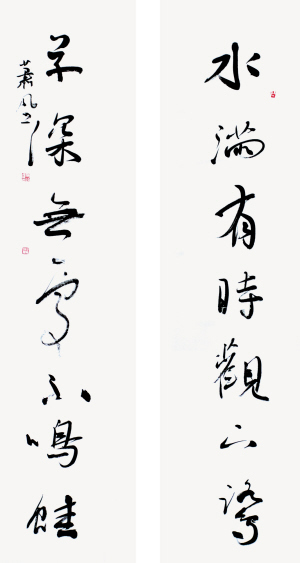 水滿有時觀下鷺
草深無處不鳴蛙
蕭風